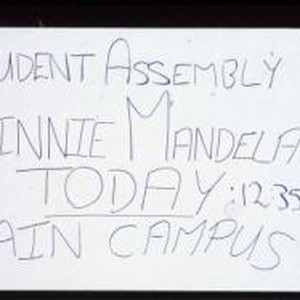 UDENT ASSEMBLY
INNIE MANDELA
TODAY : 12.35
AIN CAMPUS